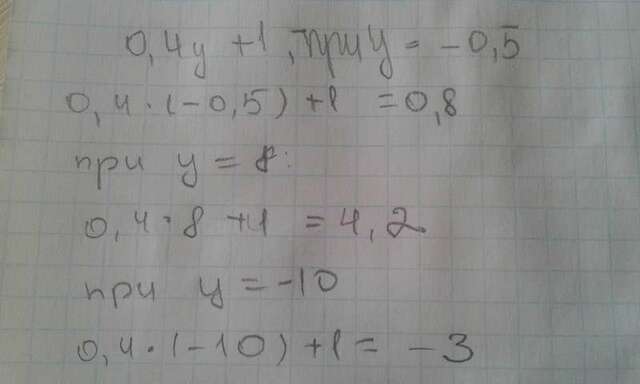 0,4y +1, при y = -0,5
0,4·(-0,5)+1 =0,8
при y = 8:
0,4·8 +1 = 4,2
при y = -10
0,4·(-10)+1= -3